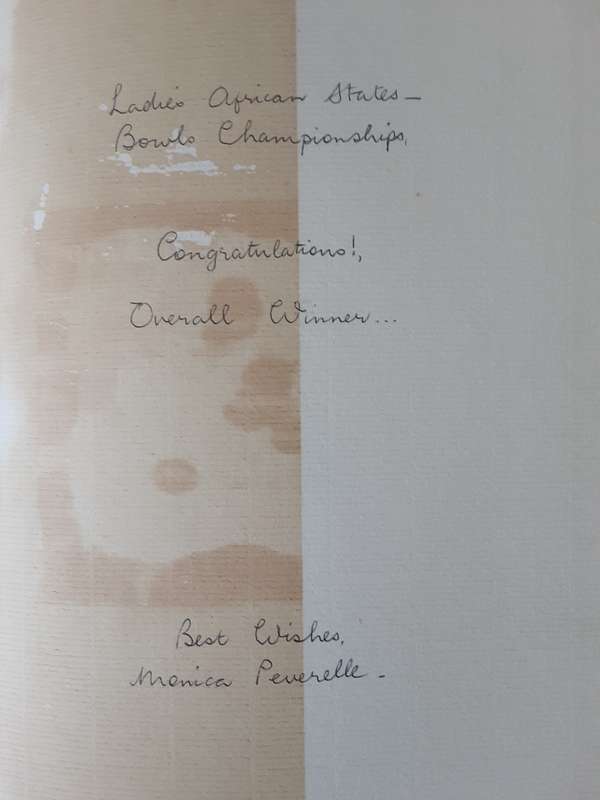 Ladies African States –
Bowls Championships,
Congratulations!,
Overall Winner...
Best Wishes,
Monica Peverelle -